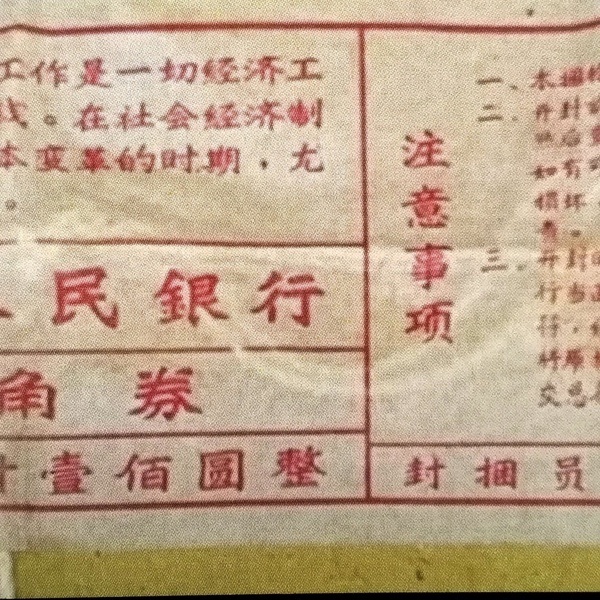 工作是一切经济工
。在社会经济制
本变革的时期，尤
。
民銀行
角券
壹佰圆整
注意事项
一、本捆
二、开封
后
如有
损坏
。
三、开封
行当
符，
将原
交总
封捆员